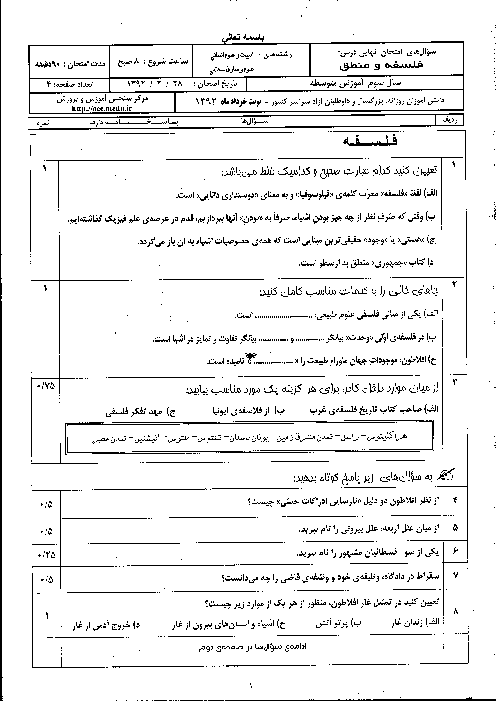 باسمه تعالی
سؤال‌های امتحان نهایی درس:
فلسفه و منطق
رشته‌های:
ساعت شروع: ۸ صبح
مدت امتحان: ۹۰ دقیقه
سال سوم آموزش متوسطه
تاریخ امتحان: ۲۸ / ۳ / ۱۳۹۲
تعداد صفحه: ۴
دانش آموزان روزانه، بزرگسال و داوطلبان آزاد سراسر کشور – نوبت خرداد ماه ۱۳۹۲
مرکز سنجش آموزش و پرورش
http://aee.medu.ir
ردیف
سؤال‌ها
نمره
فلسفه
۱
تعیین کنید کدام عبارت صحیح و کدامیک غلط می‌باشد:
۱
الف) لفظ «فلسفه» معرّب کلمه‌ی «فیلوسوفیا» و به معنای «دوستداری دانایی» است.
ب) وقتی که صرف نظر از چه چیز بودن اشیاء، صرفاً به «بودن» آنها بپردازیم، قدم در عرصه‌ی علم فیزیک گذاشته‌ایم.
ج) «هستی» یا «وجود» حقیقی‌ترین مبنایی است که همه‌ی خصوصیات اشیاء به آن باز می‌گردد.
د) کتاب «جمهوری» متعلق به ارسطو است.
۲
جاهای خالی را با کلمات مناسب کامل کنید:
۱
الف) یکی از مبانی فلسفی علوم طبیعی، .................... است.
ب) در فلسفه‌ی اولی «وحدت» بیانگر ............ و ............ بیانگر تفاوت و تمایز در اشیا است.
ج) افلاطون، موجودات جهان ماوراء طبیعت را « ............ » نامیده است.
۳
از میان موارد داخل کادر، برای هر گزینه یک مورد مناسب بیابید:
۰/۷۵
الف) صاحب کتاب تاریخ فلسفه‌ی غرب ب) از فلاسفه‌ی ایونیا ج) مهد تفکر فلسفی
هراکلیتوس – راسل – تمدن مشرق زمین – یونان باستان –
به سؤال‌های زیر پاسخ کوتاه بدهید:
۴
از نظر افلاطون دو دلیل «نارسایی ادراکات حسّی» چیست؟
۰/۵
۵
از میان علل اربعه، علل بیرونی را نام ببرید.
۰/۵
۶
یکی از سوفسطائیان مشهور را نام ببرید.
۰/۲۵
۷
سقراط در دادگاه، وظیفه‌ی خود و وظیفه‌ی قاضی را چه می‌دانست؟
۰/۵
۸
تعیین کنید در تمثیل غار افلاطون، منظور از هر یک از موارد زیر چیست؟
۱
الف) زندان غار ب) پرتو آتش ج) اشیاء و انسان‌های بیرون از غار د) خروج آدمی از غار
ادامه‌ی سؤال‌ها در صفحه‌ی دوم
۱